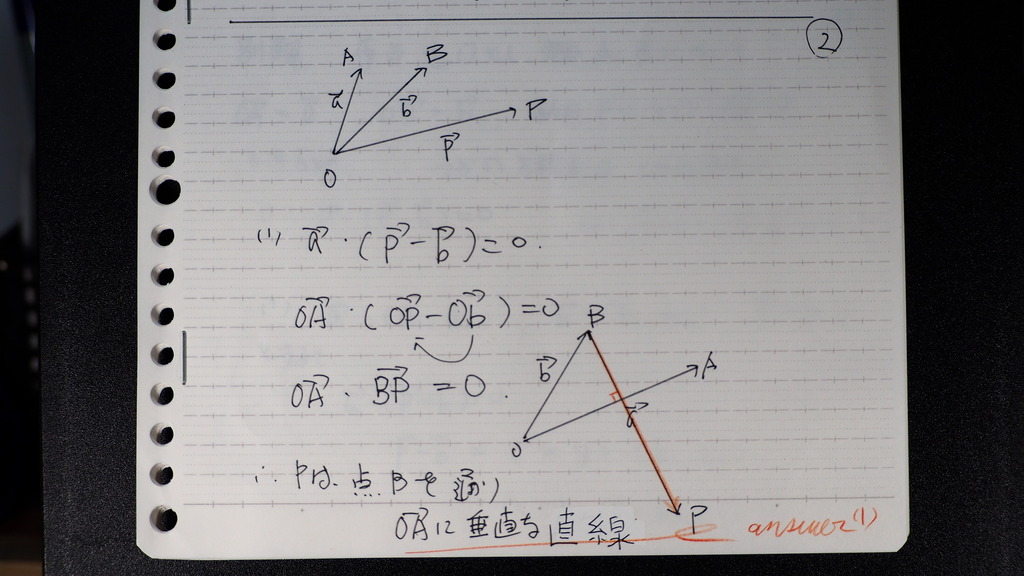 ②
A
B
a⃗
b⃗
P
p⃗
O
(1) a⃗・(p⃗-b⃗)=0.
OA⃗・(OP⃗-Ob⃗)=0
B
OA⃗・BP⃗=0.
b⃗
A
a⃗
O
∴ Pは、点Bを通り
OA⃗に垂直な直線
P
answer(1)